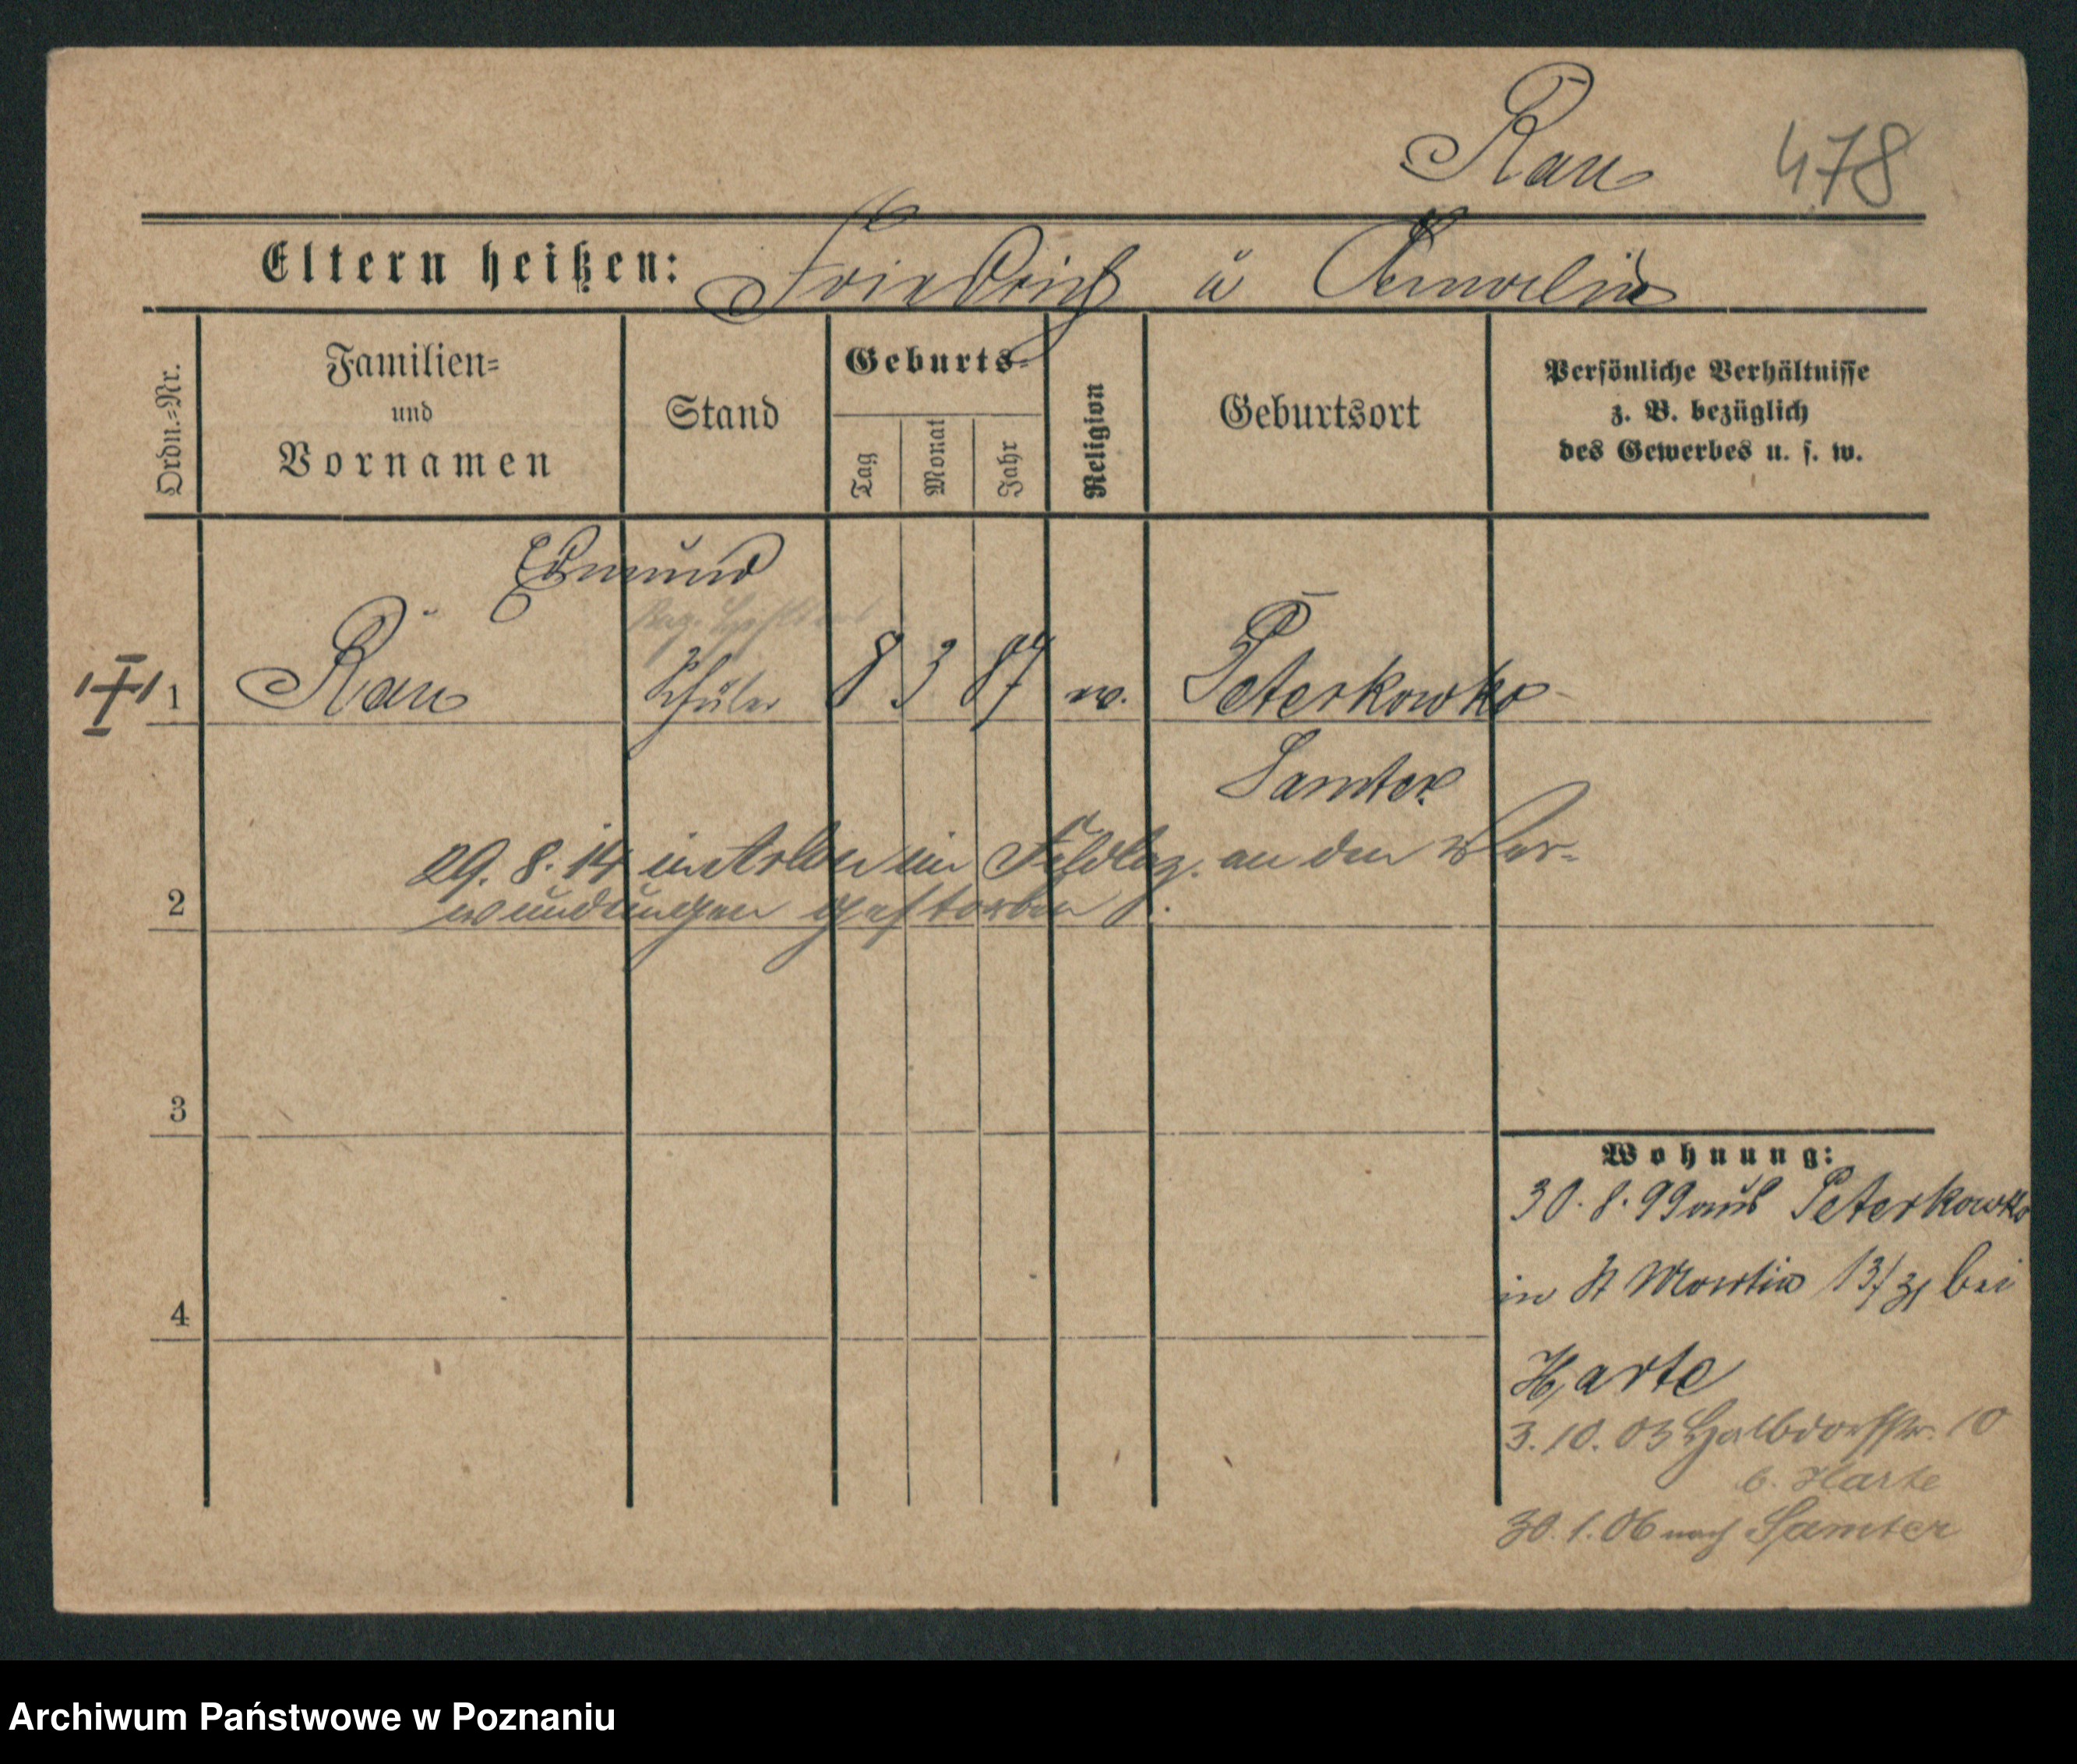 Rau 478
Eltern heißen: Friedrich u
Ordn.=Nr.
Familien=
und
Vornamen
Stand
Geburts-
Tag
Monat
Jahr
Religion
Geburtsort
Persönliche Verhältnisse
z. B. bezüglich
des Gewerbes u. s. w.
Edmund
1 Rau Schüler 8 3 87 ev. Peterkowko
Samter
29. 8. 14 in Arlon im Feldlaz. an den Ver-
2 wundungen gestorben
3
4
Wohnung:
30. 8. 99 aus Peterkowko
in St Martin 13/ bei
Harte
3. 10. 03 Halbdorfstr. 10
b. Harte
30. 1. 06 nach Samter
Archiwum Państwowe w Poznaniu